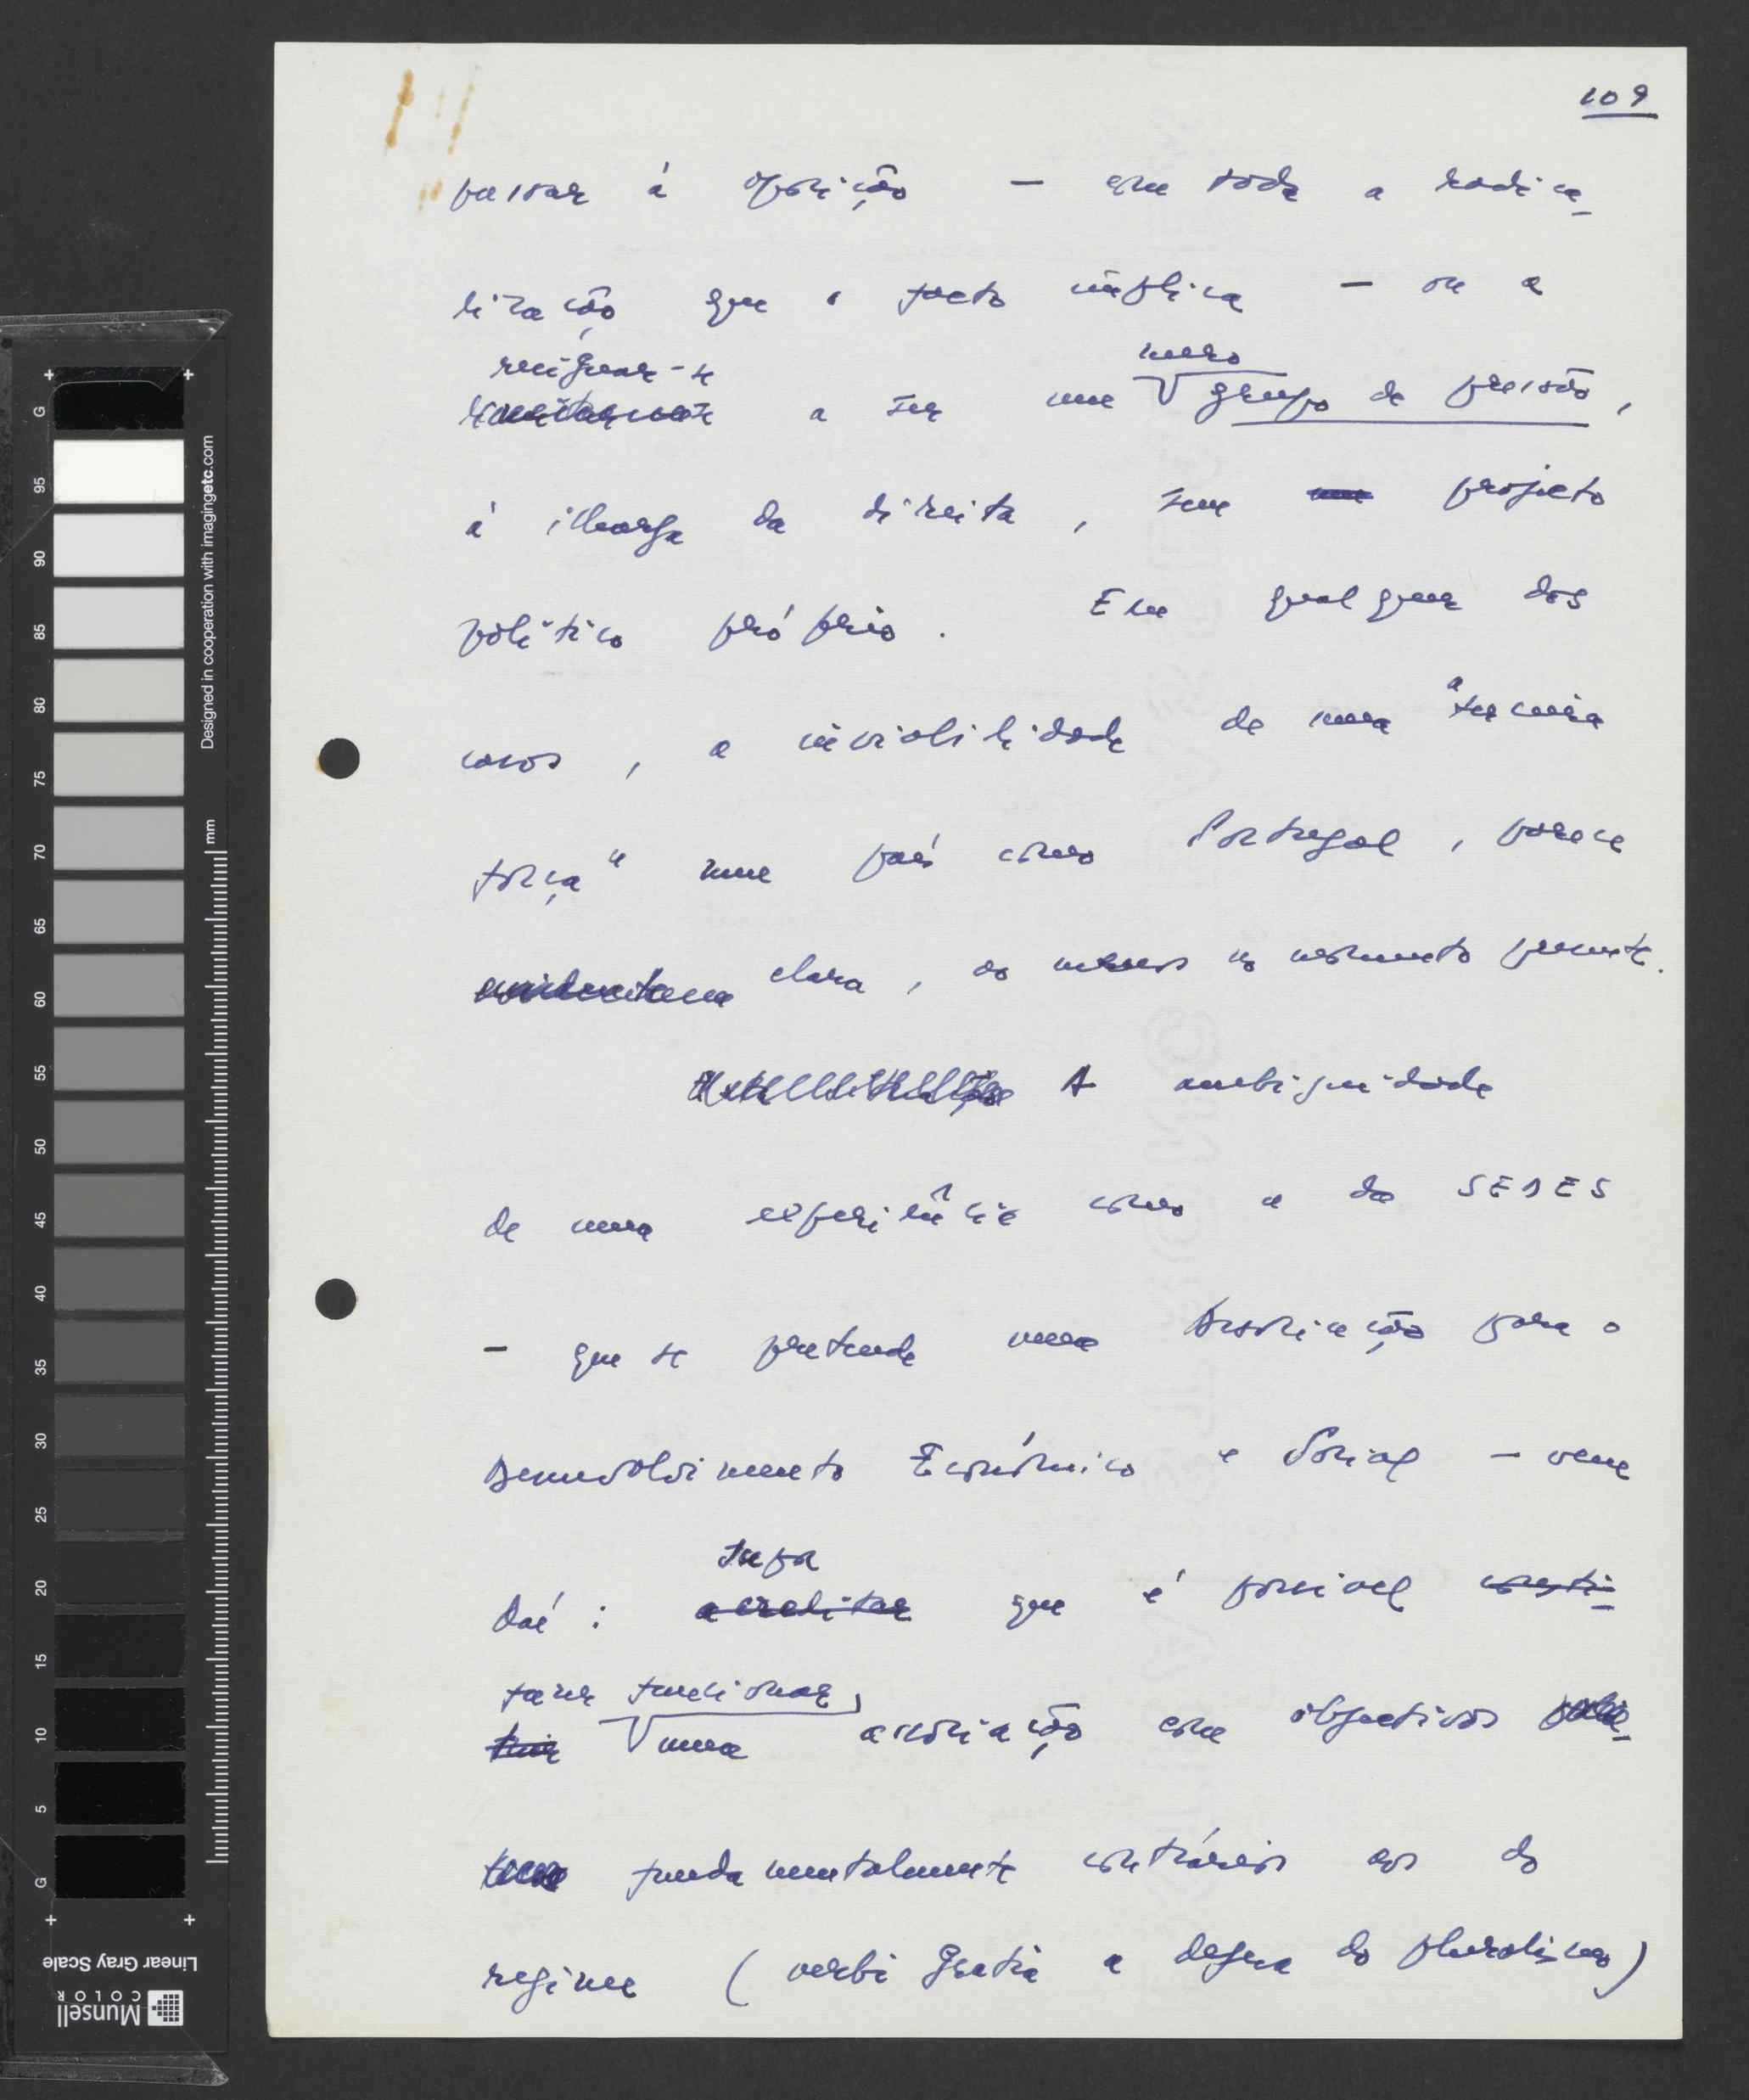 109
passar à oposição – com toda a radica-
lização que o facto implica – ou a
resignar-se
a ser um mero grupo de pressão,
à ilharga da direita, sem um projecto
político próprio. Em qualquer dos
casos, a inviabilidade de uma "terceira
força" num país como Portugal, parece
evidentem clara, ao menos no momento presente.
A ambiguidade
de uma experiência como a da SEDES
– que se pretende uma Associação para o
Desenvolvimento Económico e Social – vem
daí: supor
acreditar que é possível consti-
fazer funcionar,
tuir uma associação com objectivos
fundamentalmente contrários aos do
regime (verbi gratia a defesa do pluralismo)
G
95
90
85
80
75
70
65
60
55
50
45
40
35
30
25
20
15
10
5
G
mm
Designed in cooperation with imagingetc.com
Linear Gray Scale
Munsell
COLOR